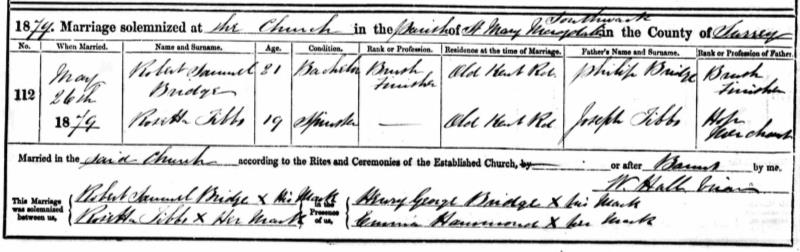 1879. Marriage solemnized at the Church in the Parish of St Mary Southwark in the County of Surrey
No. When Married. Name and Surname. Age. Condition. Rank or Profession. Residence at the time of Marriage. Father's Name and Surname. Rank or Profession of Father.
112 May 26th 1879
Robert Samuel Bridge 21 Bachelor Brush Finisher Old Kent Rd Philip Bridge Brush Finisher
Rosetta Tibbs 19 Spinster — Old Kent Rd Joseph Tibbs Hop Merchant
Married in the said Church according to the Rites and Ceremonies of the Established Church, by or after Banns by me.
W. Hall
This Marriage was solemnized between us, Robert Samuel Bridge X His Mark
Rosetta Tibbs X Her Mark
in the Presence of us, Henry George Bridge X his Mark
Emma Hammond X her Mark